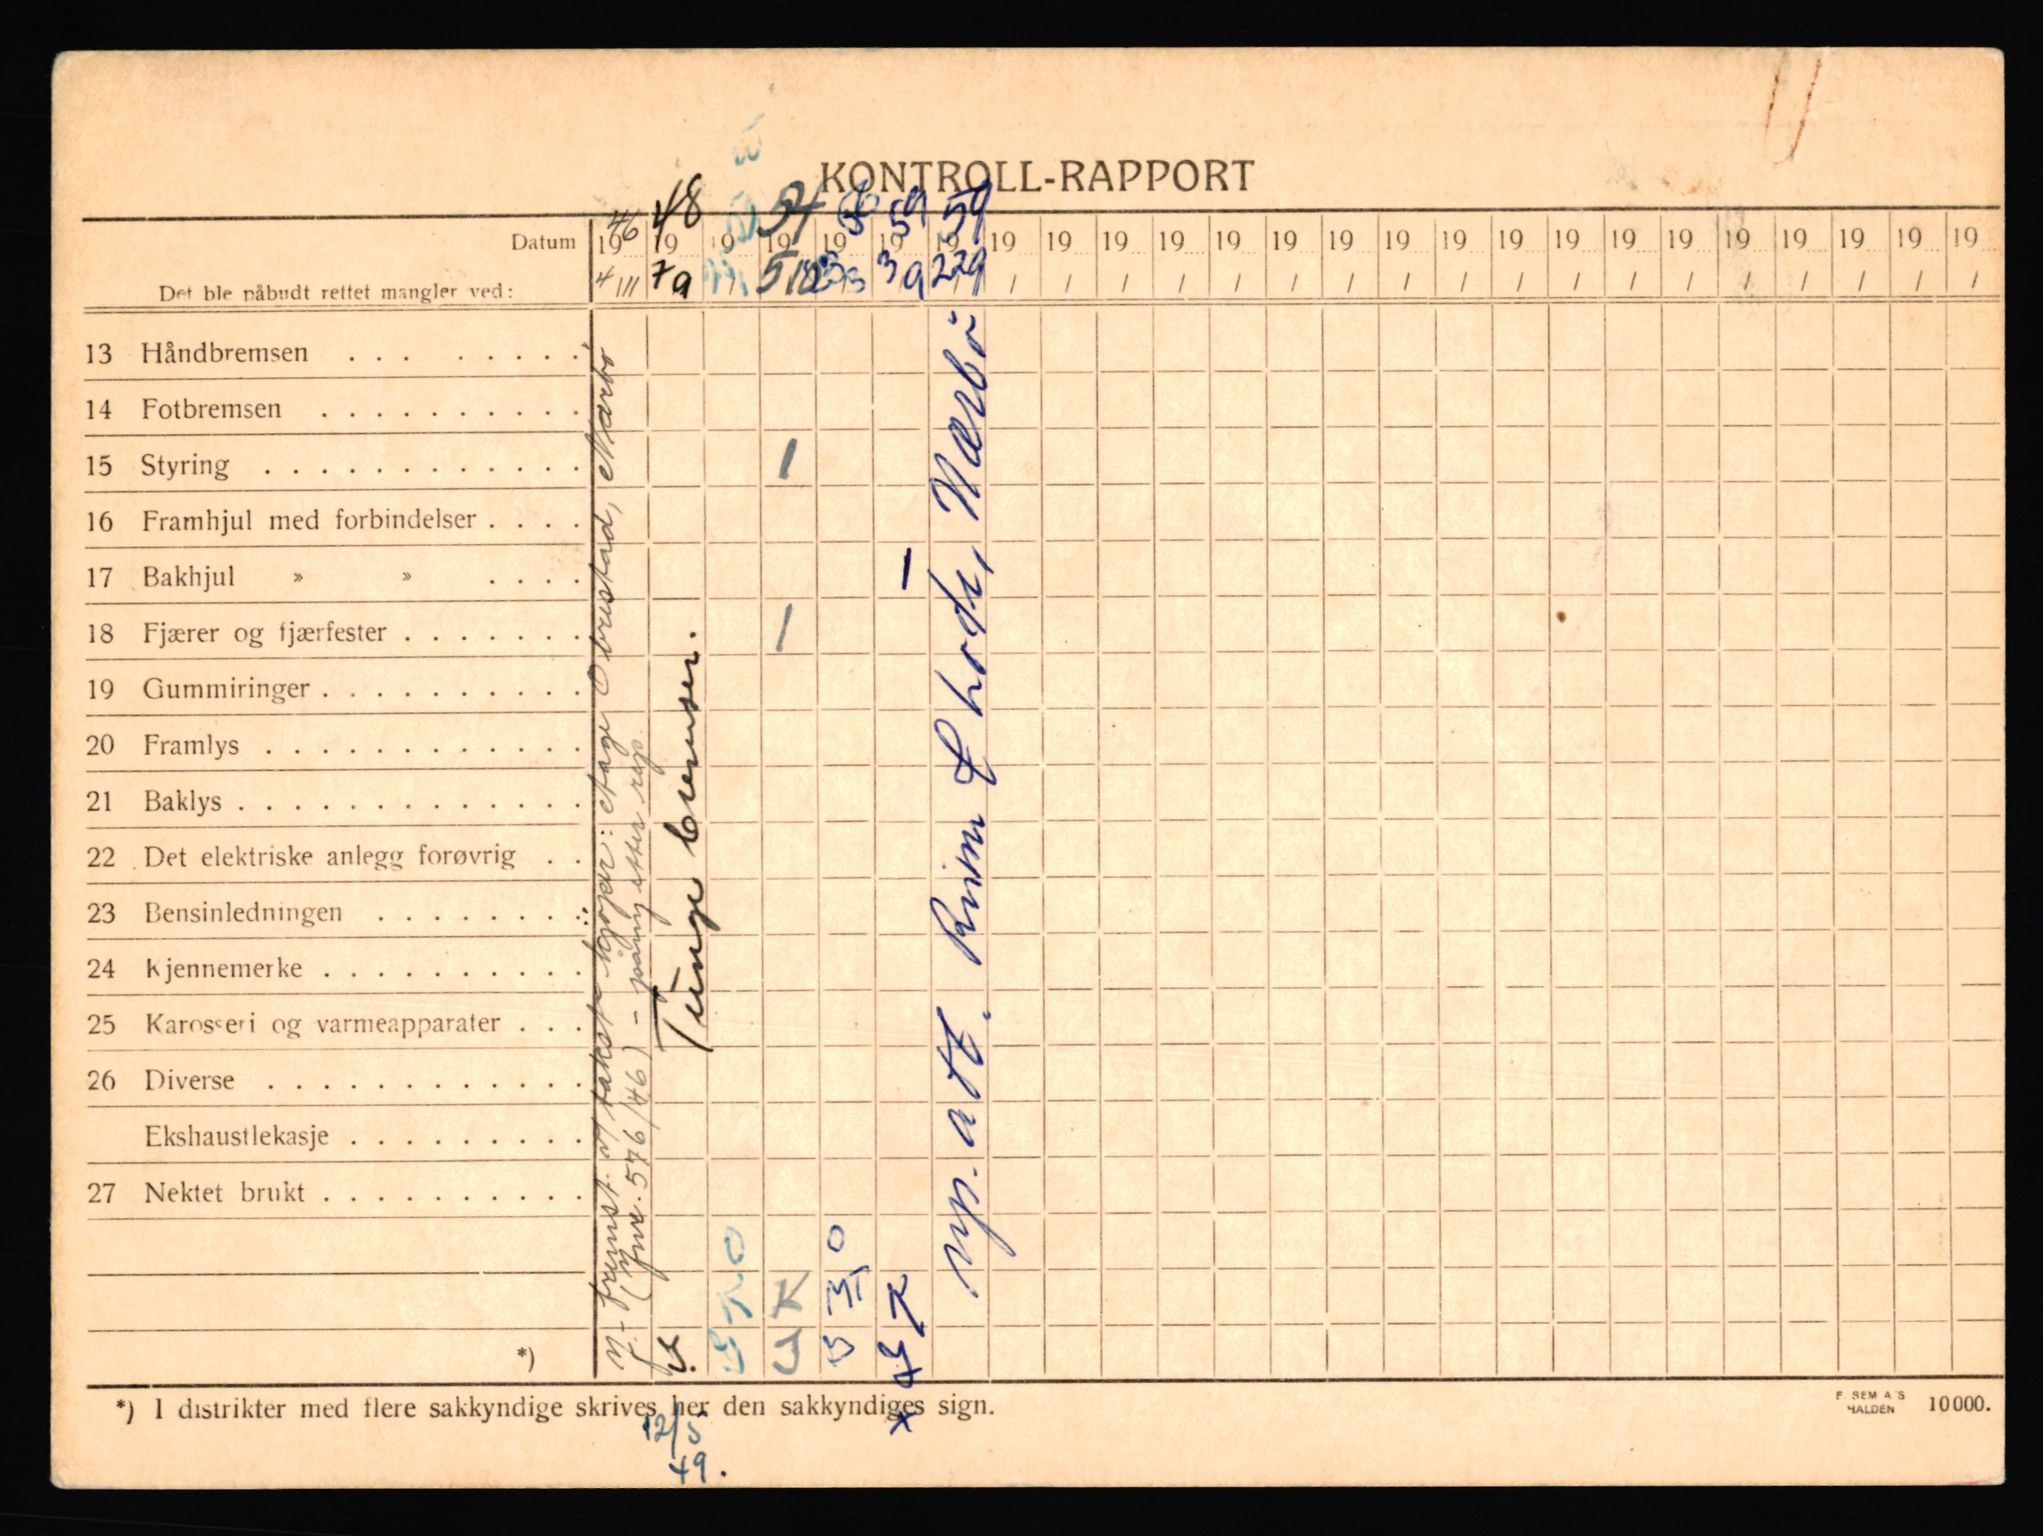 KONTROLL-RAPPORT
Datum 19 46 19 48 19 19 54 19 56 19 59 19 59 19 19 19 19 19 19 19 19 19 19 19 19 19 19 19 19 19 19
Det ble påbudt rettet mangler ved: 4/11 7/9 5/10 3/9 22/9 / / / / / / / / / / / / / / / / / /
13 Håndbremsen
14 Fotbremsen
15 Styring 1
16 Framhjul med forbindelser
17 Bakhjul » » 1
18 Fjærer og fjærfester 1
19 Gummiringer
20 Framlys
21 Baklys
22 Det elektriske anlegg forøvrig
23 Bensinledningen
24 Kjennemerke
25 Karosseri og varmeapparater
26 Diverse
Ekshaustlekasje
27 Nektet brukt
*)
påny etter rep.
(Jnr. 576/46)
Tunge bremser.
vp. att. Rim & brodr, Nærbö
K K
*) I distrikter med flere sakkyndige skrives her den sakkyndiges sign.
F. SEM A/S
HALDEN
10000.
12/5
49.